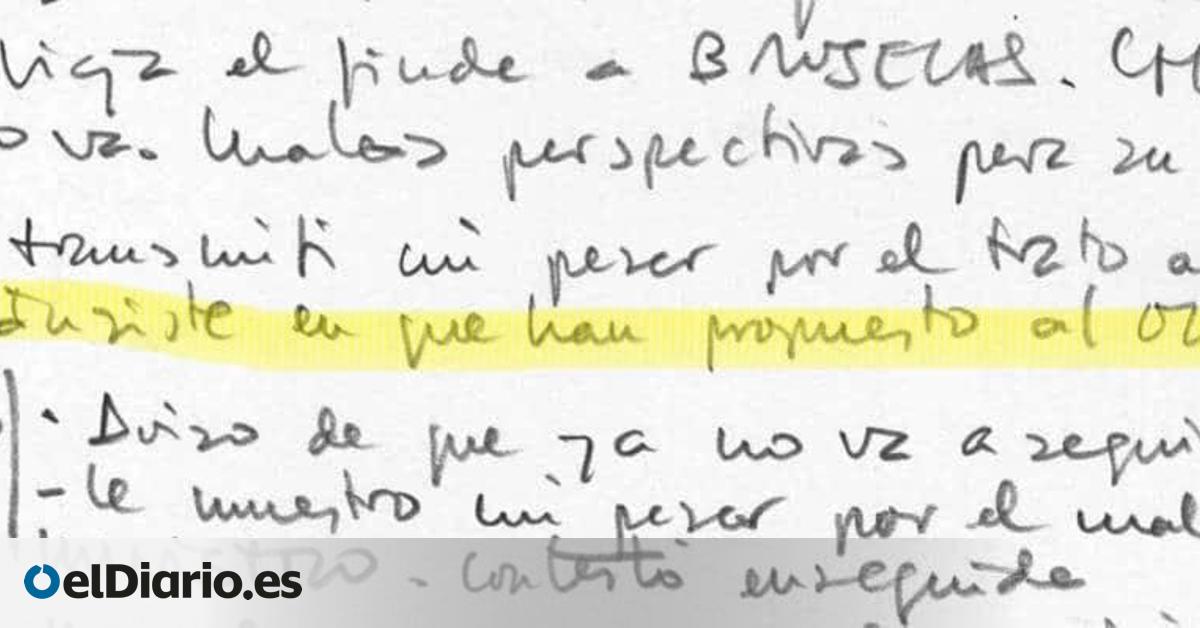 el finde a BRUSELAS.
va. Malas perspectivas para su
transmití mi pesar por el trato a
Insiste en que han propuesto al
· Aviso de que ya no va a segui
- le muestro mi pesar por el mal
. Contestó enseguida
elDiario.es